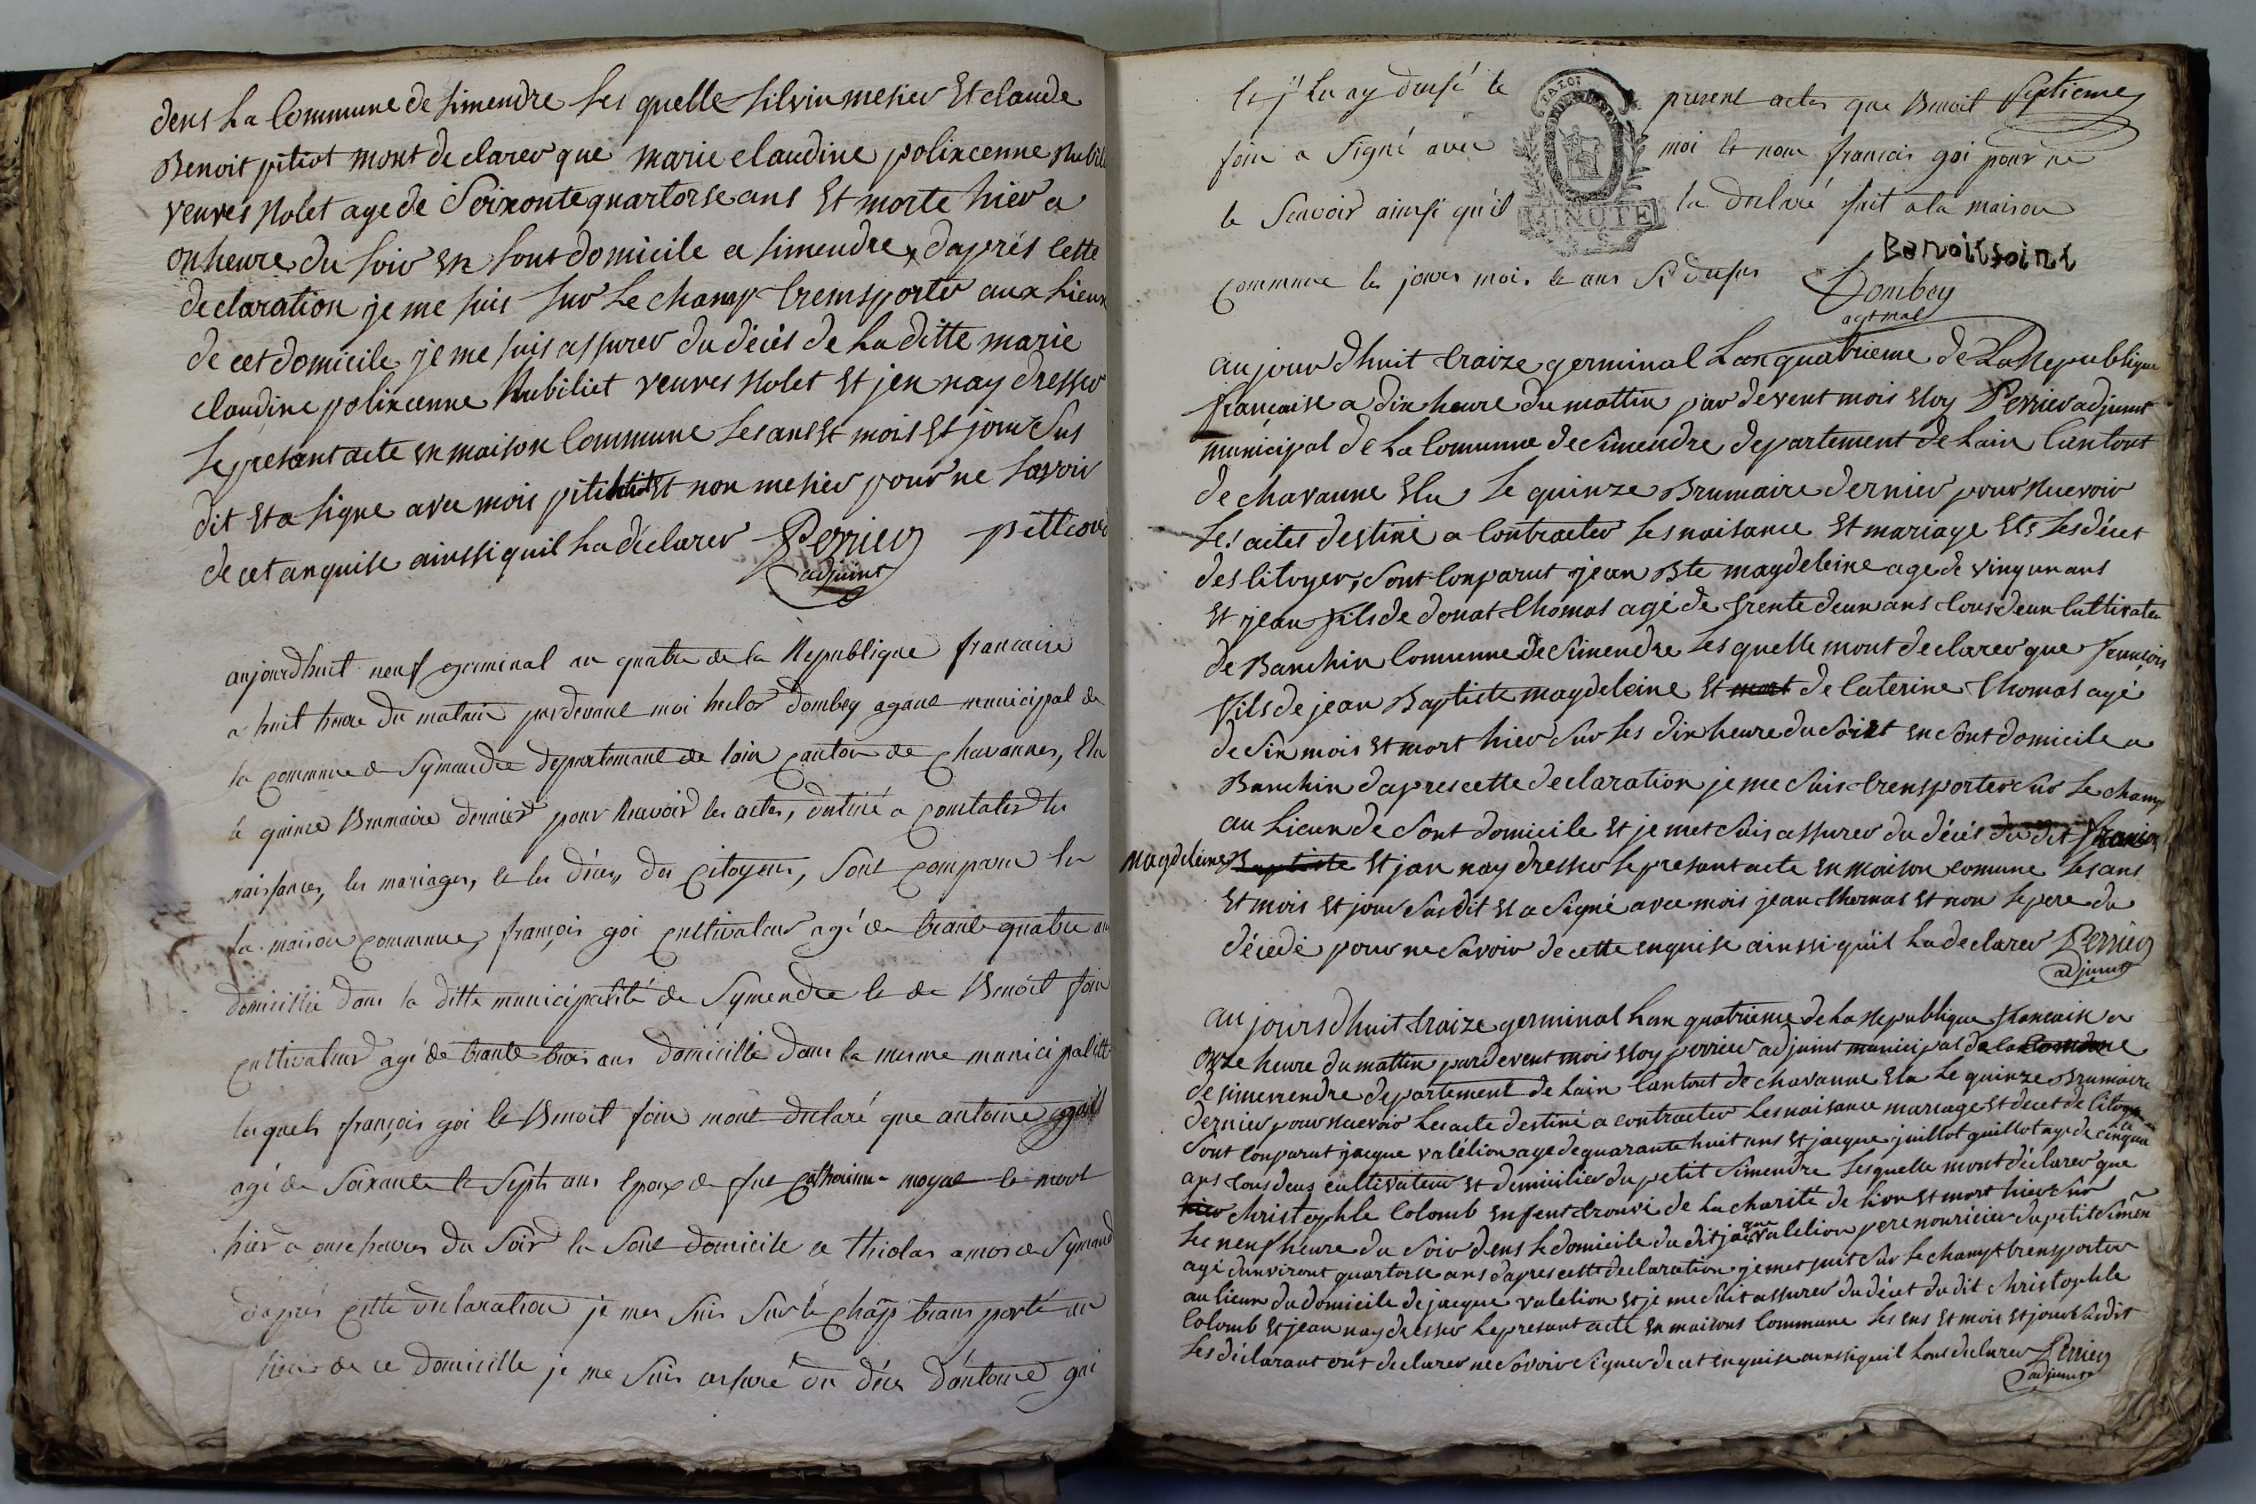 dens La Commune de simendre les quelle silvin mesier Et claude
Benoit pitiot mont declarer que marie claudine polixcenne Rubili
veuves Nolet age de soixonte quartorse ans Et morte hier a
on heure du soir en sont domicile a simendre daprés cette
declaration je me suis sur Le champ trensporter aux Lieux
de cet domicile je me suis assurer du décés de La ditte marie
claudine polixcenne Rubiliet veuves Nolet Et jen nay dresser
Le presant acte en maison Commune Les ans Et mois Et jour Sus
dit Et a signe avec mois Et non mesier pour ne savoir
de cet anquise ainssi quil La déclarer Perrier pittiot
adjoint
aujourdhuit neuf germinal an quatre de la Republique francaise
a huit heure du matain pardevant moi dombey agant municipal de
la commune de Symandre departemant de loin canton de chavannes, Elu
le quince Brumaire dernier pour Recevoir les actes, destiné a constater les
naissances, les mariages, et les décès des citoyens, sont comparu en
la maison commune, françois goi cultivateur agé de trante quatre an
domicillié dans la ditte municipalité de Symendre et de Benoit foin
cultivateur agé de trante trois ans domicillié dans la meme municipalitt
lesquels françois goi et Benoit foin mont declaré que antoine goi
agé de soixante et septs ans epoux de fue catherinne moyne et mort
hier a onse heures du soir en sont domicile a thiolas Symand
d'aprés cette declaration je mes suis sur le chãp transporté au
lieux de ce domicille je me suis assuré du déces d'antoine goi
et j'en ay dressé le present actes que Benoit Septieme
foin a signé avec moi et non francois goi pour ne
le scavoir ainsi qu'il la declaré fait a la maison
commune les jours mois et ans si dessus
Benoitfoint
Dombey
agt mal
MINUTE
aujourdhuit traize germinal Lan quatrieme de La Republique
française a dix heure du mattin par devent mois Eloy Perrier adjoint
municipal de La Comunne de Simendre departement de Lain Cantont
de chavanne Elu Le quinze Brumaire dernier pour Recevoir
Les actes destiné a Contracter Les naisance Et mariage Et Les décet
des Citoyens, sont Conparut jean Bte magdeleine age de vingt un ans
Et jean fils de donat thomas agé de trente deux ans tous deux Cultivater
de Banchin Comunne de Simendre Les quelle mont declarer que françois
fils de jean Baptiste magdeleine Et mort de Caterine thomas agé
de six mois Et mort hier sur Les dix heure du soir en sont domicile a
Banchin daprés cette declaration je me suis trensporter sur Le champ
au Lieux de sont domicile Et je met suis assurer du décés du dit francois
magdeleine Baptiste Et jan nay dresser Le presant acte en maison comune Les ans
Et mois Et jour susdit Et a signé avec mois jean thomas Et non Le pere du
décedé pour ne savoir de cette enquise ainssi quïl La declarer Perrier
adjoint
au joursdhuit traize germinal Lan quatrieme de La Republique francaise a
onze heure du mattin pardevent mois Eloy perrier adjoint municipal de la Comune
de simenendre departement de Lain Cantont de chavanne Elu Le quinze Brumaire
dernier pour Recevoir Les acte destiné a contracter Les naisance mariage Et decet de Citoyen
sont Conparut jacque valélion age de quarante huit ans Et jacque juillot guillot age de cinquan
ans tous deus cultivateur Et demicilier du petit Simendre Les quelle mont déclarer que
hier christophle Colomb enfent trouvé de La charité de Lion Et mort hier sur
Les neuf heure du soir dens Le domicile du dit jacque valelion pere nouricier du petit Simen
agé dunviront quartorse ans daprés cette declaration je met suit sur Le champt trensporter
au Lieux du domicile de jacque valelion Et je me suit assurer du décet du dit christophle
Colomb Et jean nay dresser Le presant acte en maisons Commune Les ens Et mois Et jour susdit
Les déclarant ont declarer ne savoir signer de cet enquise ainssi quil Lont declarer Perrier
adjoint